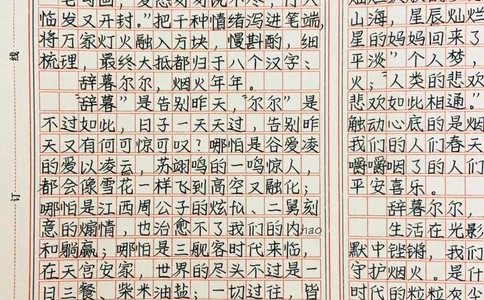 说不尽，行人
临发又开封。”把千种情绪泻进笔端，
将万家灯火融入方块，慢斟酌，细
梳理，最终大抵都归于八个汉字：
辞暮尔尔，烟火年年。
“辞暮”是告别昨天，“尔尔”是
不过如此，日子一天天过，告别昨
天又有何可惊可叹？哪怕是谷爱凌
的爱以凌云，苏翊鸣的一鸣惊人，
都会像雪花一样飞到高空又融化；
哪怕是江西周公子的炫、二舅刻
意的煽情，也治愈不了我们的内hao
和躺赢；哪怕是三舰客时代来临，
在天宫安家，世界的尽头不过是一
日三餐、柴米油盐；一切过往，皆
山海，星辰灿烂
星的妈妈回来了
平淡”个人梦，
火；“人类的悲欢
悲欢如此相通。”
触动心底的是烟
我们的人们春天
嚼嚼咽了的人们
平安喜乐。
辞暮尔尔，
生活在光影
默中铿锵，我们
守护烟火。是什
时代的粒粒灰尘
线
订